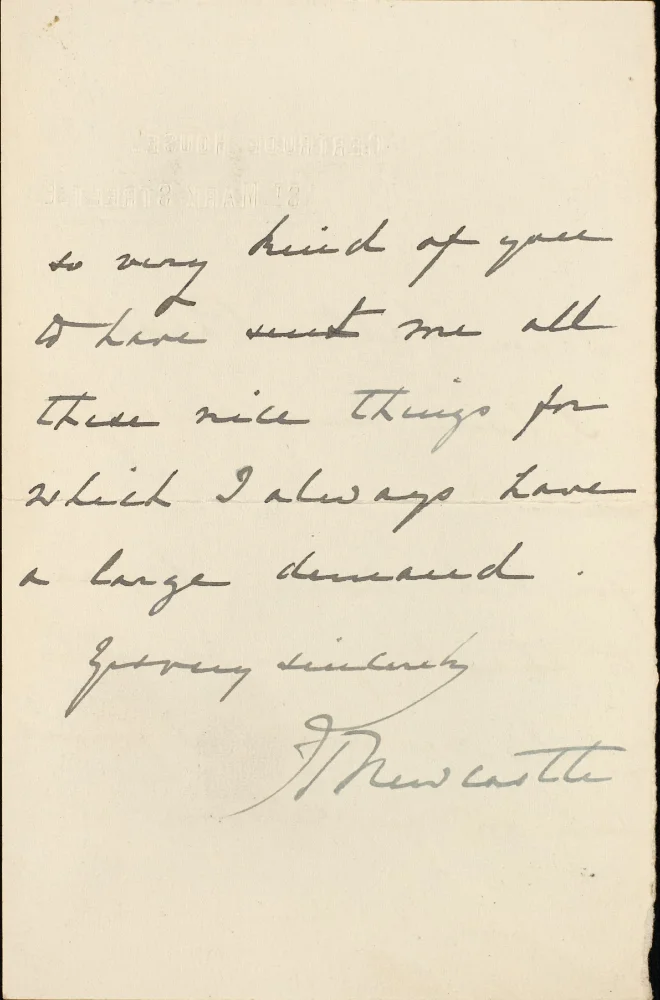 so very kind of you
to have sent me all
these nice things for
which I always have
a large demand .
Yrs very sincerely
Newcastle